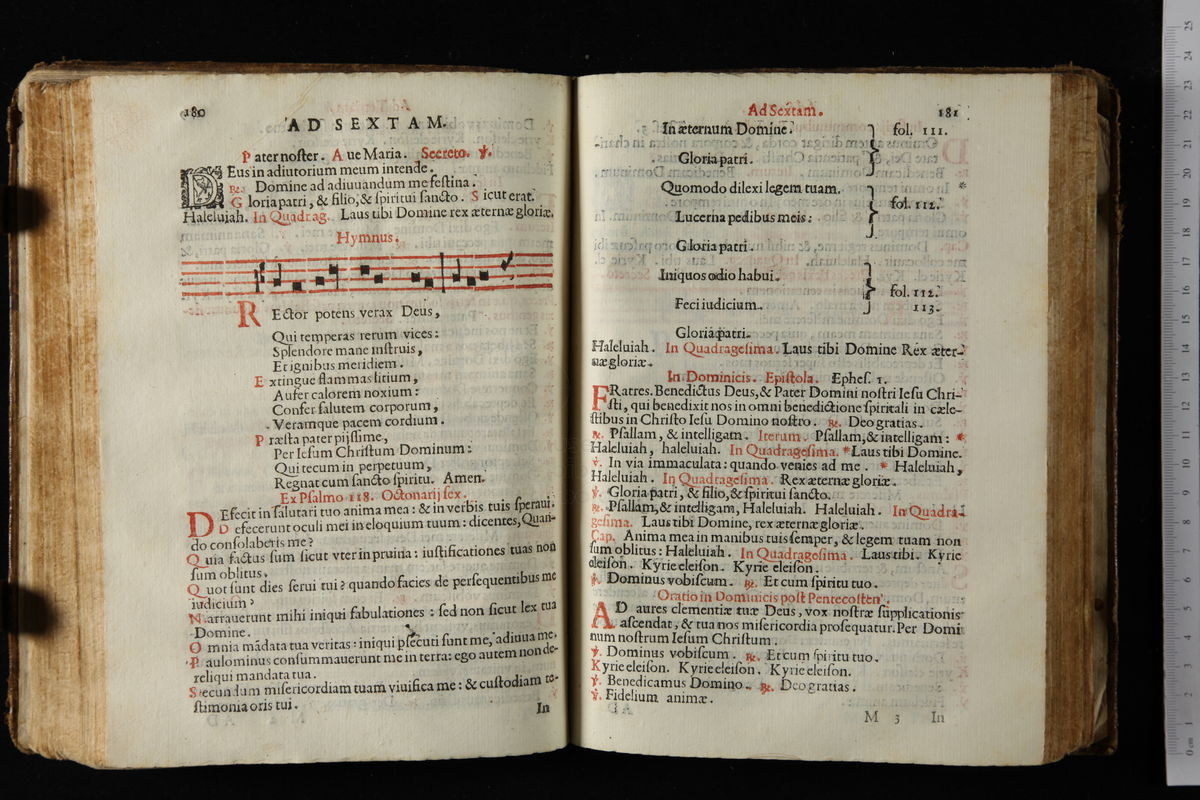 180
AD SEXTAM.
Pater noster. Aue Maria. Secreto. ℣.
DEus in adiutorium meum intende.
℟. Domine ad adiuuandum me festina.
Gloria patri, & filio, & spiritui sancto. Sicut erat.
Haleluiah. In Quadrag. Laus tibi Domine rex æternæ gloriæ.
Hymnus.
REctor potens verax Deus,
Qui temperas rerum vices:
Splendore mane instruis,
Et ignibus meridiem.
Extingue flammas litium,
Aufer calorem noxium:
Confer salutem corporum,
Veramque pacem cordium.
Præsta pater pijssime,
Per Iesum Christum Dominum:
Qui tecum in perpetuum,
Regnat cum sancto spiritu. Amen.
Ex Psalmo 118. Octonarij sex.
DEfecit in salutari tuo anima mea: & in verbis tuis speraui.
Defecerunt oculi mei in eloquium tuum: dicentes, Quan-
do consolaberis me?
Quia factus sum sicut vter in pruina: iustificationes tuas non
sum oblitus.
Quot sunt dies serui tui? quando facies de persequentibus me
iudicium?
Narrauerunt mihi iniqui fabulationes: sed non sicut lex tua
Domine.
Omnia mãdata tua veritas: iniqui psecuti sunt me, adiuua me.
Paulominus consummauerunt me in terra: ego autem non de-
reliqui mandata tua.
Secundum misericordiam tuam viuifica me: & custodiam te-
stimonia oris tui.
In
Ad Sextam.
181
In æternum Domine.
fol. 111.
Gloria patri.
Quomodo dilexi legem tuam.
fol. 112.
Lucerna pedibus meis:
Gloria patri.
Iniquos odio habui.
fol. 112.
Feci iudicium.
113.
Gloria patri.
Haleluiah. In Quadragesima. Laus tibi Domine Rex æter-
næ gloriæ.
In Dominicis. Epistola. Ephes. 1.
FRatres. Benedictus Deus, & Pater Domini nostri Iesu Chri-
sti, qui benedixit nos in omni benedictione spiritali in cæle-
stibus in Christo Iesu Domino nostro. ℟. Deo gratias.
℟. Psallam, & intelligam. Iterum. Psallam, & intelligam: *
Haleluiah, haleluiah. In Quadragesima. * Laus tibi Domine.
℣. In via immaculata: quando venies ad me. * Haleluiah,
Haleluiah. In Quadragesima. Rex æternæ gloriæ.
℣. Gloria patri, & filio, & spiritui sancto.
℟. Psallam, & intelligam, Haleluiah. Haleluiah. In Quadra-
gesima. Laus tibi Domine, rex æternæ gloriæ.
Cap. Anima mea in manibus tuis semper, & legem tuam non
sum oblitus: Haleluiah. In Quadragesima. Laus tibi. Kyrie
eleison. Kyrie eleison. Kyrie eleison.
℣. Dominus vobiscum. ℟. Et cum spiritu tuo.
Oratio in Dominicis post Pentecosten.
AD aures clementiæ tuæ Deus, vox nostræ supplicationis
ascendat, & tua nos misericordia prosequatur. Per Domi
num nostrum Iesum Christum.
℣. Dominus vobiscum. ℟. Et cum spiritu tuo.
Kyrie eleison. Kyrie eleison. Kyrie eleison.
℣. Benedicamus Domino. ℟. Deo gratias.
℣. Fidelium animæ.
M 3 In